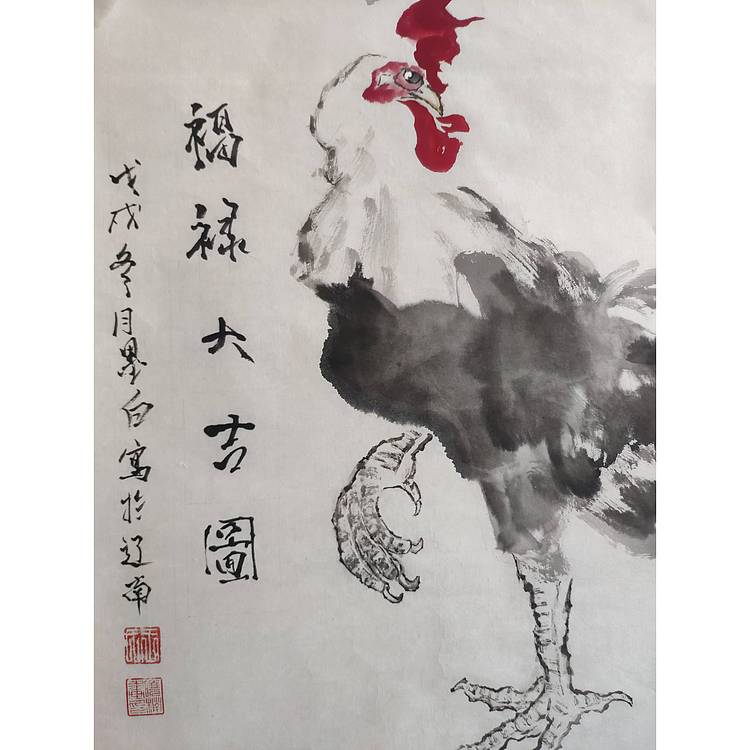 福禄大吉圖
戊戌冬月墨白寫於辽南